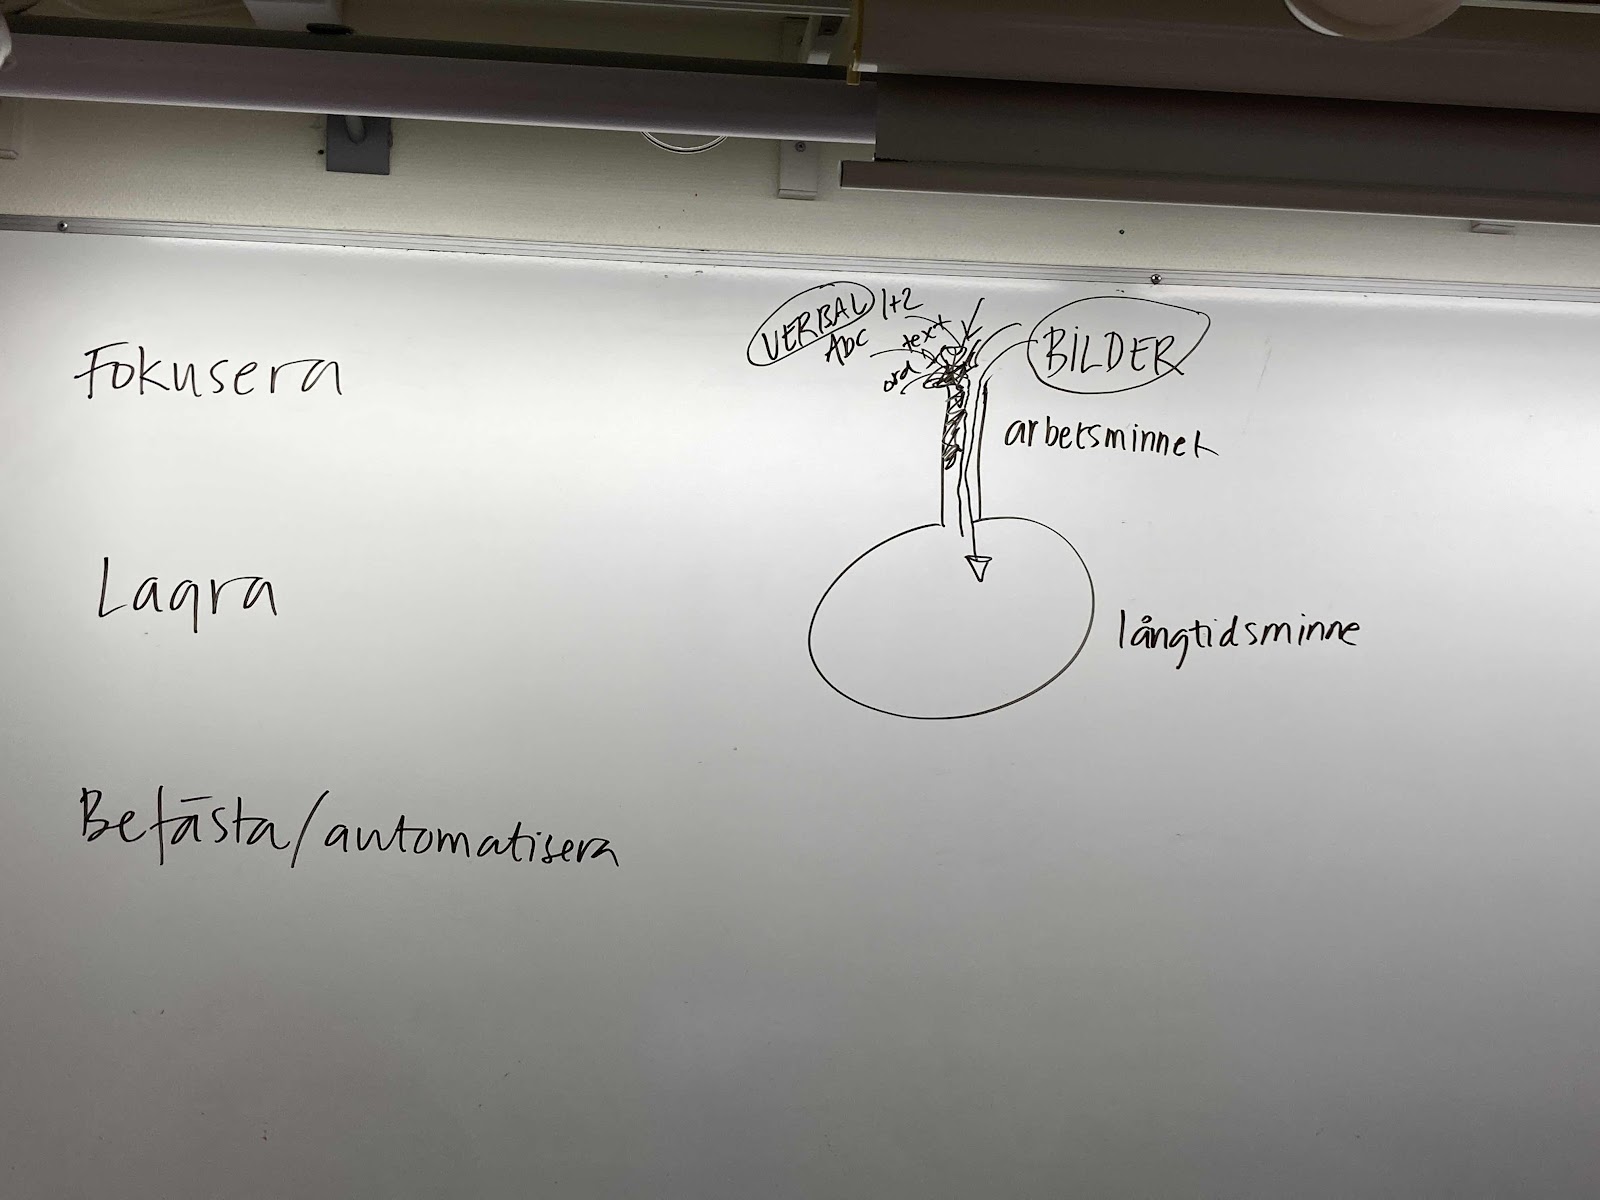 Fokusera
Lagra
Befästa/automatisera
VERBAL 1+2
Abc
text
ord
BILDER
arbetsminnet
långtidsminne